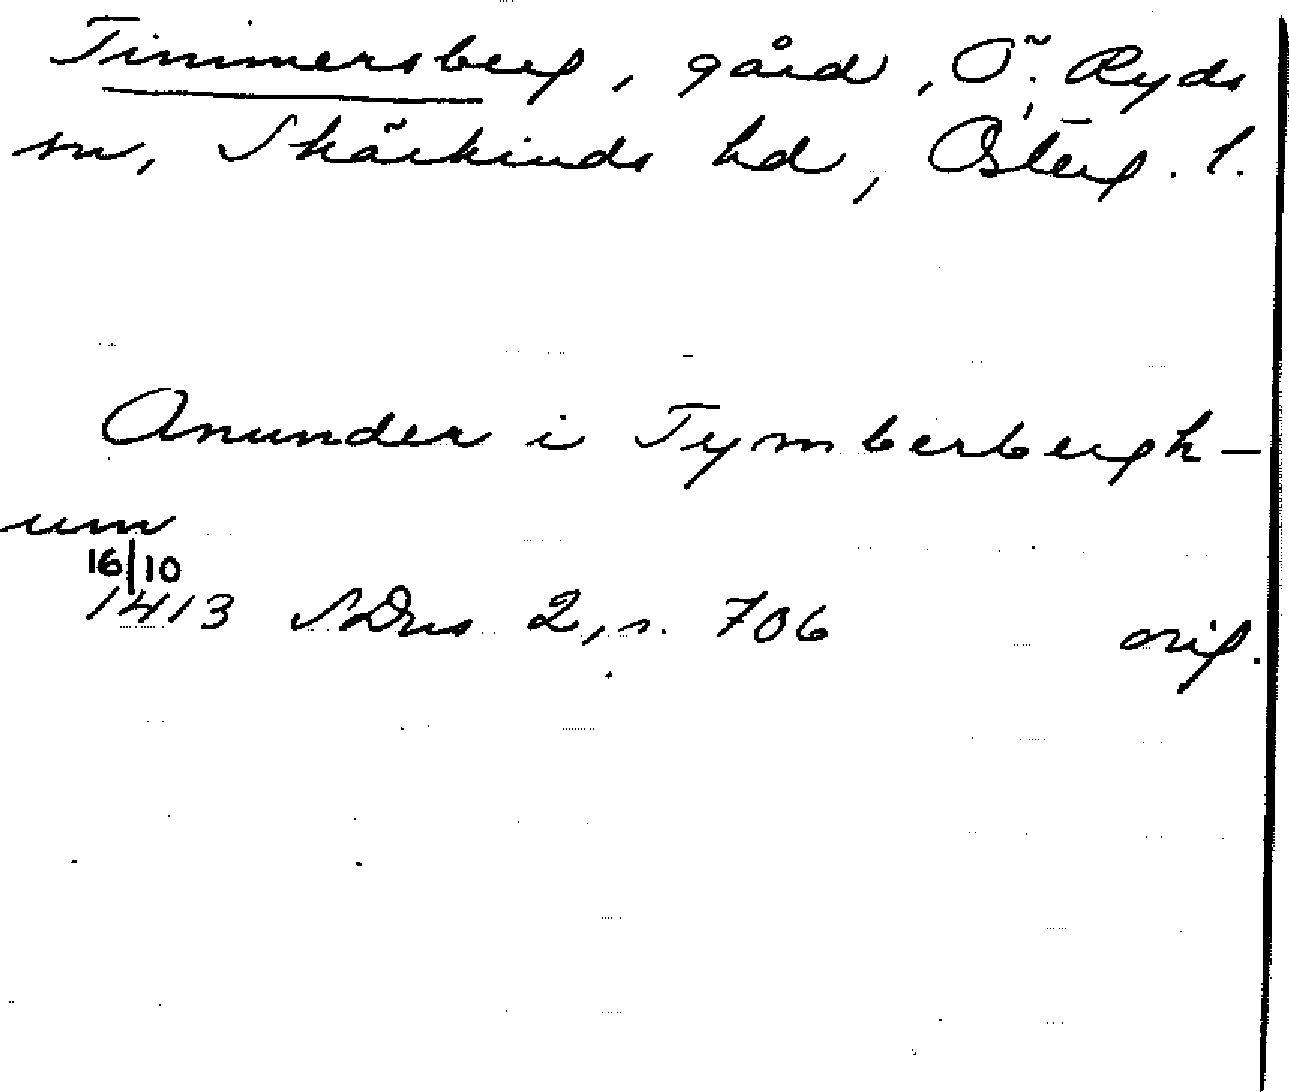 Timmersberg, gård, Ö. Ryds
sn, Skärkinds hd, Österg. l.
Anunder i Tymberbergh-
um
16/10
1413 SDns 2, s. 706 orig.